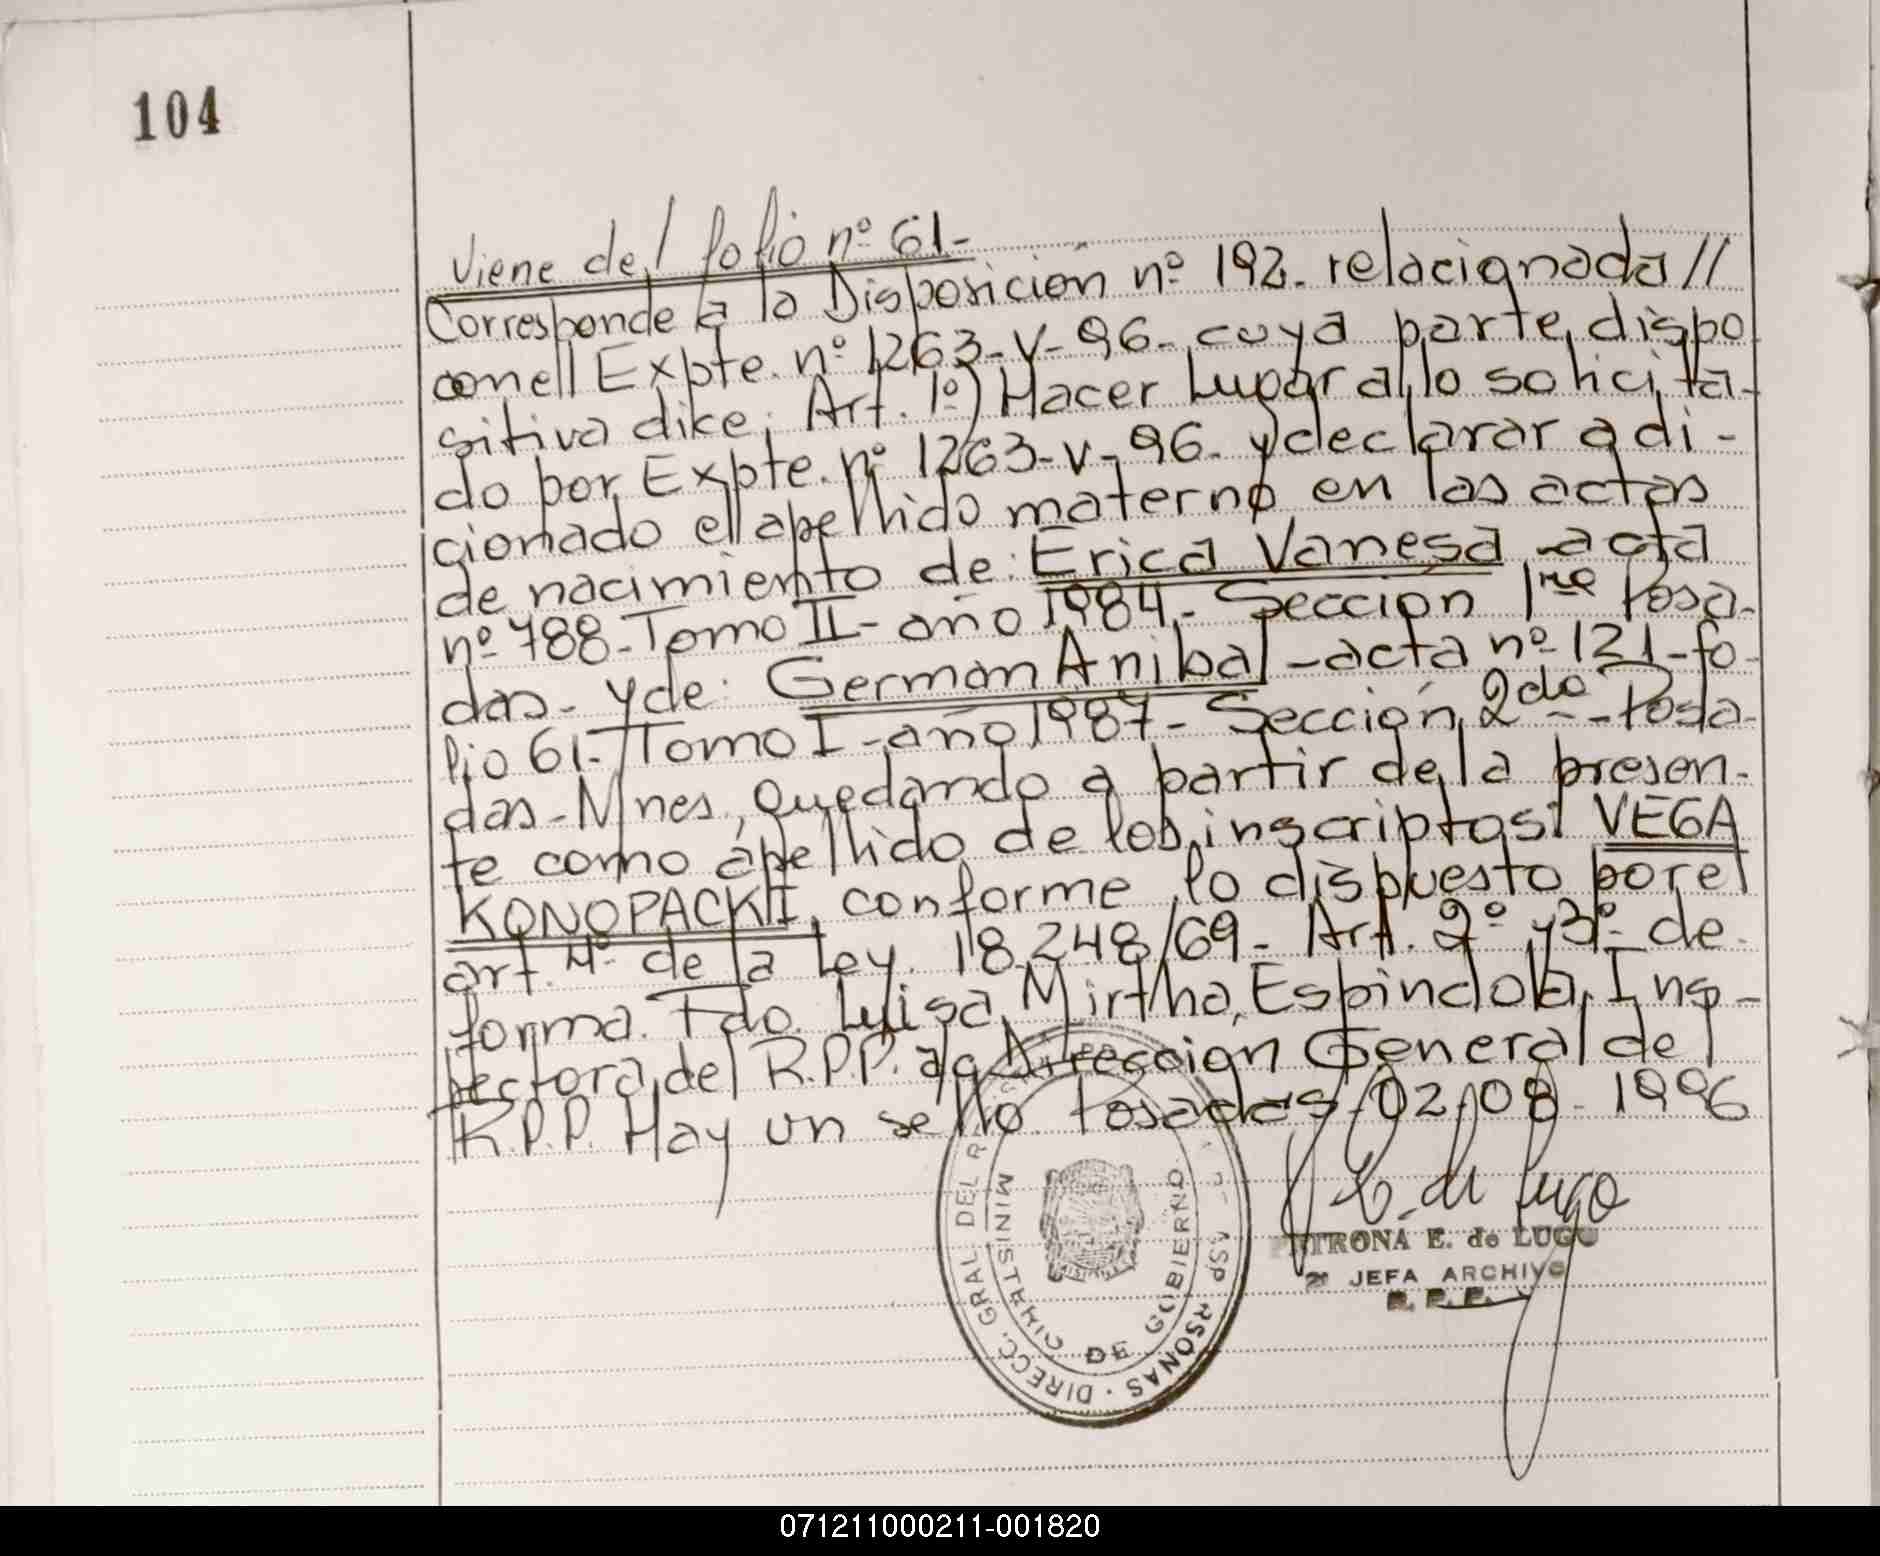 104
Viene del folio nº 61-
Corresponde a la Disposición nº 192. relacionada//
con ell Expte. nº 1263-V-96- cuya parte dispo
sitiva dice: Art. 1º) Hacer Lugar a lo solicita-
do por Expte. nº 1263-V-96. y declarar adi-
cionado el apellido materno en las actas
de nacimiento de: Erica Vanesa acta
nº 788-Tomo II-año 1984-Sección 1ra Posa-
das- y de: German Anibal-acta nº 121-fo-
lio 61-Tomo I-año 1987-Sección 2da-Posa-
das-Mnes, Quedando a partir de la presen-
te como apellido de los inscriptos: VEGA
KONOPACKI, conforme lo dispuesto por el
art. 4º de la Ley 18.248/69- Art. 2º y 3º- de
forma. Fdo. Luisa Mirtha Espindola Ins-
pectora del R.P.P. a/c Dirección General del
R.P.P. Hay un sello Posadas, 02-08-1996
P.E. de Lugo
PETRONA E. de LUGO
2ª JEFA ARCHIVO
R. P. P.
DIRECC. GRAL DEL R PERSONAS
MINISTERIO DE GOBIERNO
071211000211-001820